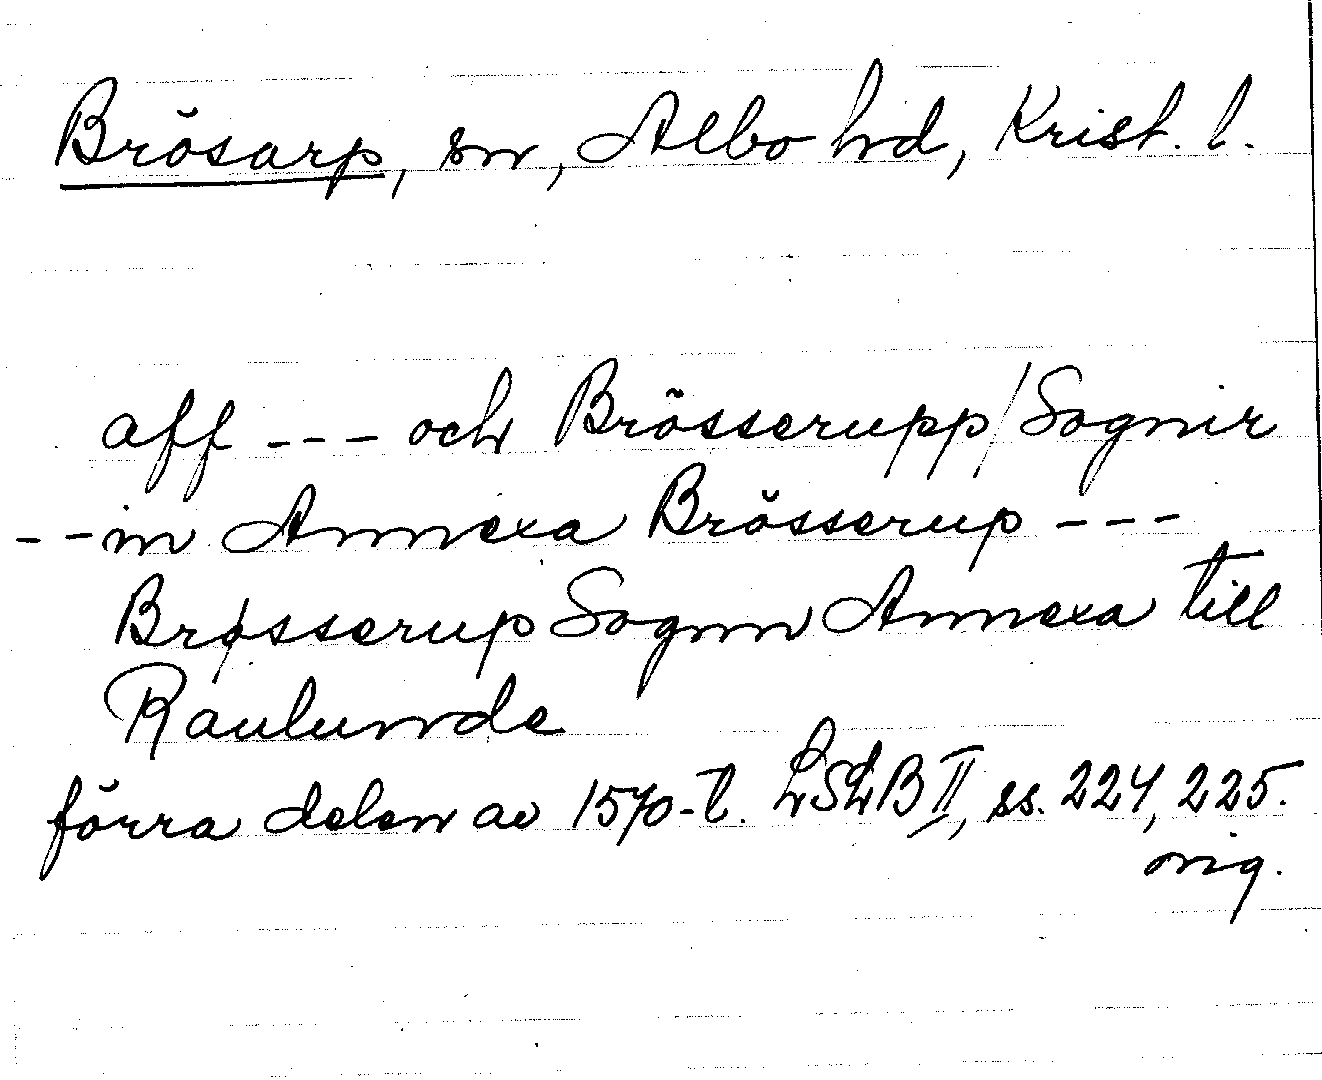 Brösarp, sn, Albo hd, Krist. l.
aff --- och Brösserupp/Sognir
--in Annexa Brösserup ---
Brøsserup Sognn Annexa till
Raulunde
förra delen av 1570-t. LSLB II, ss. 224, 225.
orig.